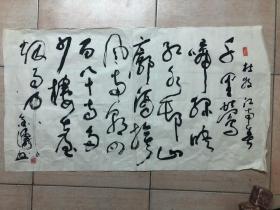 杜牧 江南春
千里莺
啼绿映
红水邨山
郭酒旗
风南朝四
百八十寺多
少楼台
烟雨中